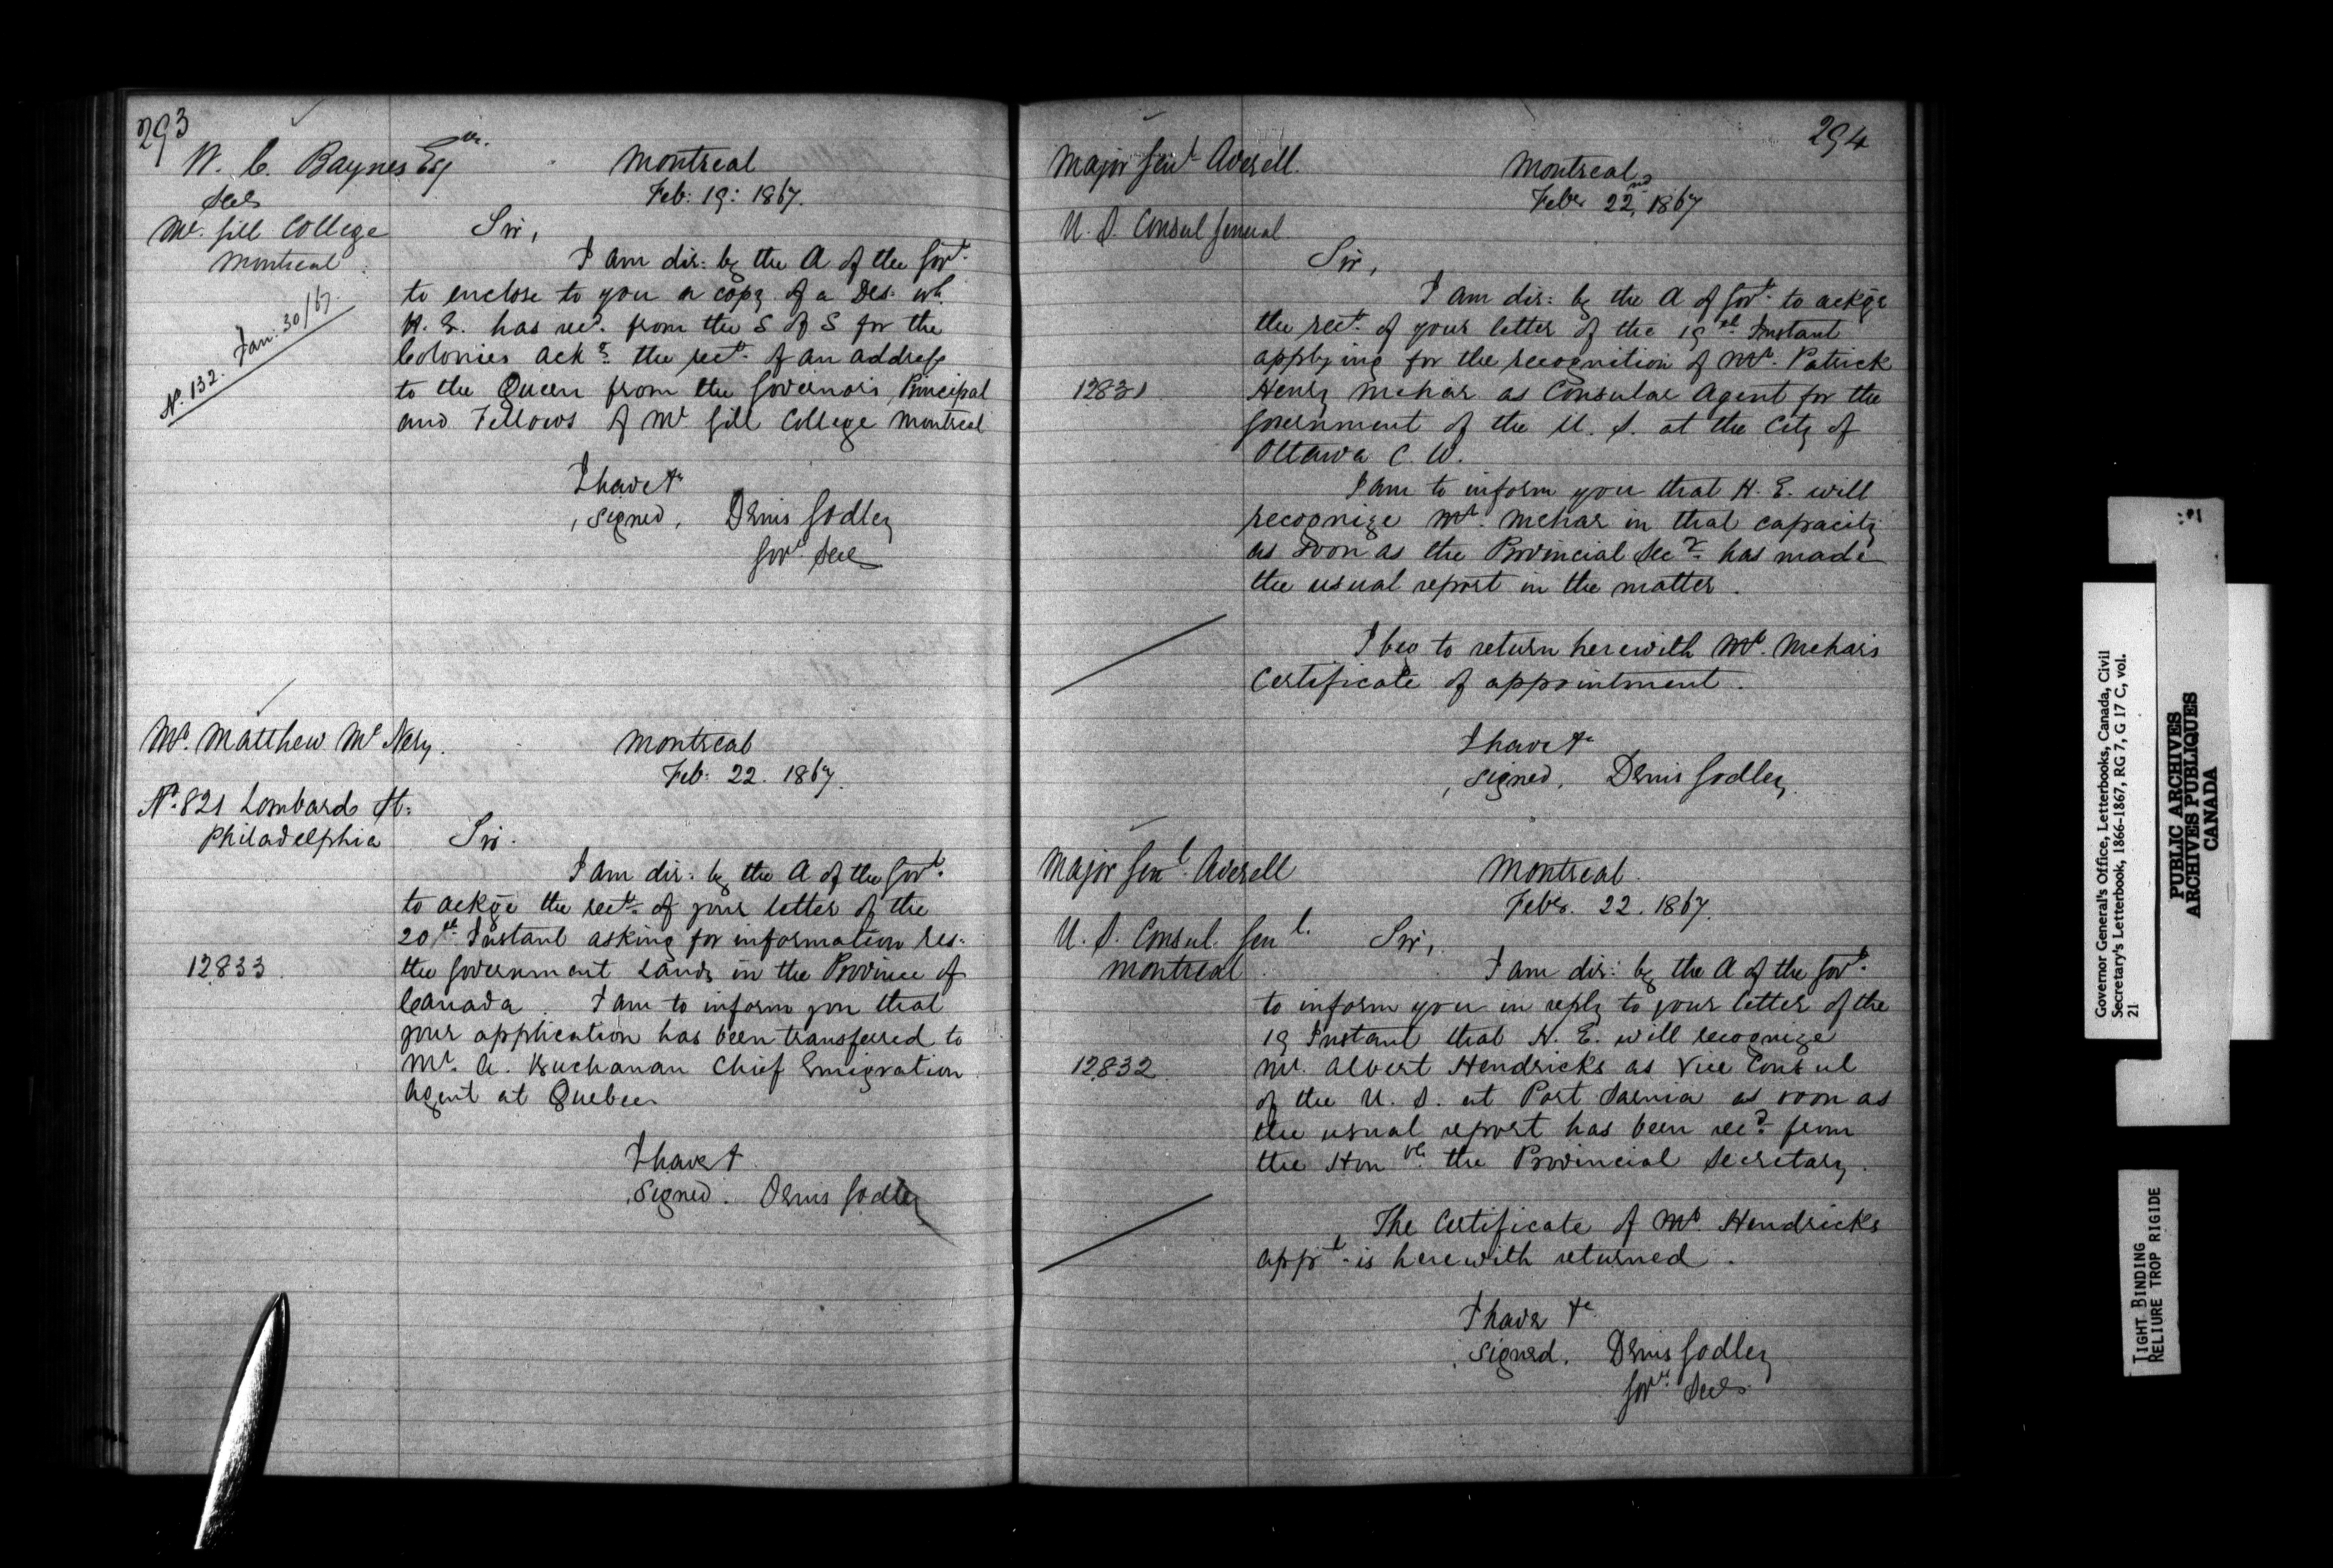 293
W. C. Baynes Esqre.
Secy
Mc. Gill College
Montreal
Montreal
Feb: 19: 1867.
No. 132. Jan: 30/67.
Sir,
I am dir: by the A of the Govt.
to enclose to you a copy of a Des: wh.
H. E. has recd. from the S of S for the
Colonies ackg. the rect. of an address
to the Queen from the Governors Principal
and Fellows of Mc Gill College Montreal
I have &c
, signed, Denis Godley
Govr. Secy
Mr. Matthew Mc
Montreal
Feb: 22. 1867.
No. 821 Lombard St:
Philadelphia
Sir.
I am dir: by the A of the Govt.
to ackge the rect. of your letter of the
20th. Instant asking for information res:
12833.
the Government Lands in the Province of
Canada. I am to inform you that
your application has been transferred to
Mr. A. Buchanan Chief Emigration
Agent at Quebec
I have &
, signed. Denis Godley
294
Major Genl Averell.
Montreal
Feby 22nd, 1867
U. S. Consul General
Sir,
I am dir: by the A of Govt. to ackge
the rect. of your letter of the 19th. Instant
applying for the recognition of Mr. Patrick
12831
Henry Mehar as Consular Agent for the
Government of the U. S. at the City of
Ottawa C. W.
I am to inform you that H. E. will
recognize Mr. Mehar in that capacity
as soon as the Provincial Secy. has made
the usual report in the matter.
I beg to return herewith Mr. Mehars
Certificate of appointment.
I have &c
, signed, Denis Godley
Major Genl. Averell
Montreal.
Feby. 22. 1867.
U. S. Consul. Genl.
Montreal
Sir,
I am dir: by the A of the Govt.
to inform you in reply to your letter of the
19 Instant that H. E. will recognize
12832
Mr. Albert Hendricks as Vice Consul
of the U. S. at Port Sarnia as soon as
the usual report has been recd. from
the Honble. the Provincial Secretary.
The Certificate of Mr. Hendricks
appt. is herewith returned.
I have &c
, signed, Denis Godley
Govr. Secy
Governor General's Office, Letterbooks, Canada, Civil
Secretary's Letterbook, 1866-1867, RG 7, G 17 C, vol.
21
PUBLIC ARCHIVES
ARCHIVES PUBLIQUES
CANADA
TIGHT BINDING
RELIURE TROP RIGIDE